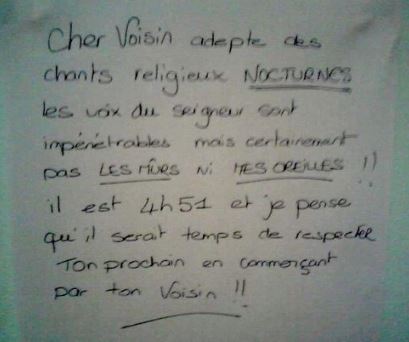 Cher Voisin adepte des
chants religieux NOCTURNES
les voix du seigneur sont
impénétrables mais certainement
pas LES MÛRS Ni MES OREILLES !!
il est 4h51 et je pense
qu'il serait temps de respecter
Ton prochain en commerçant
par ton Voisin !!